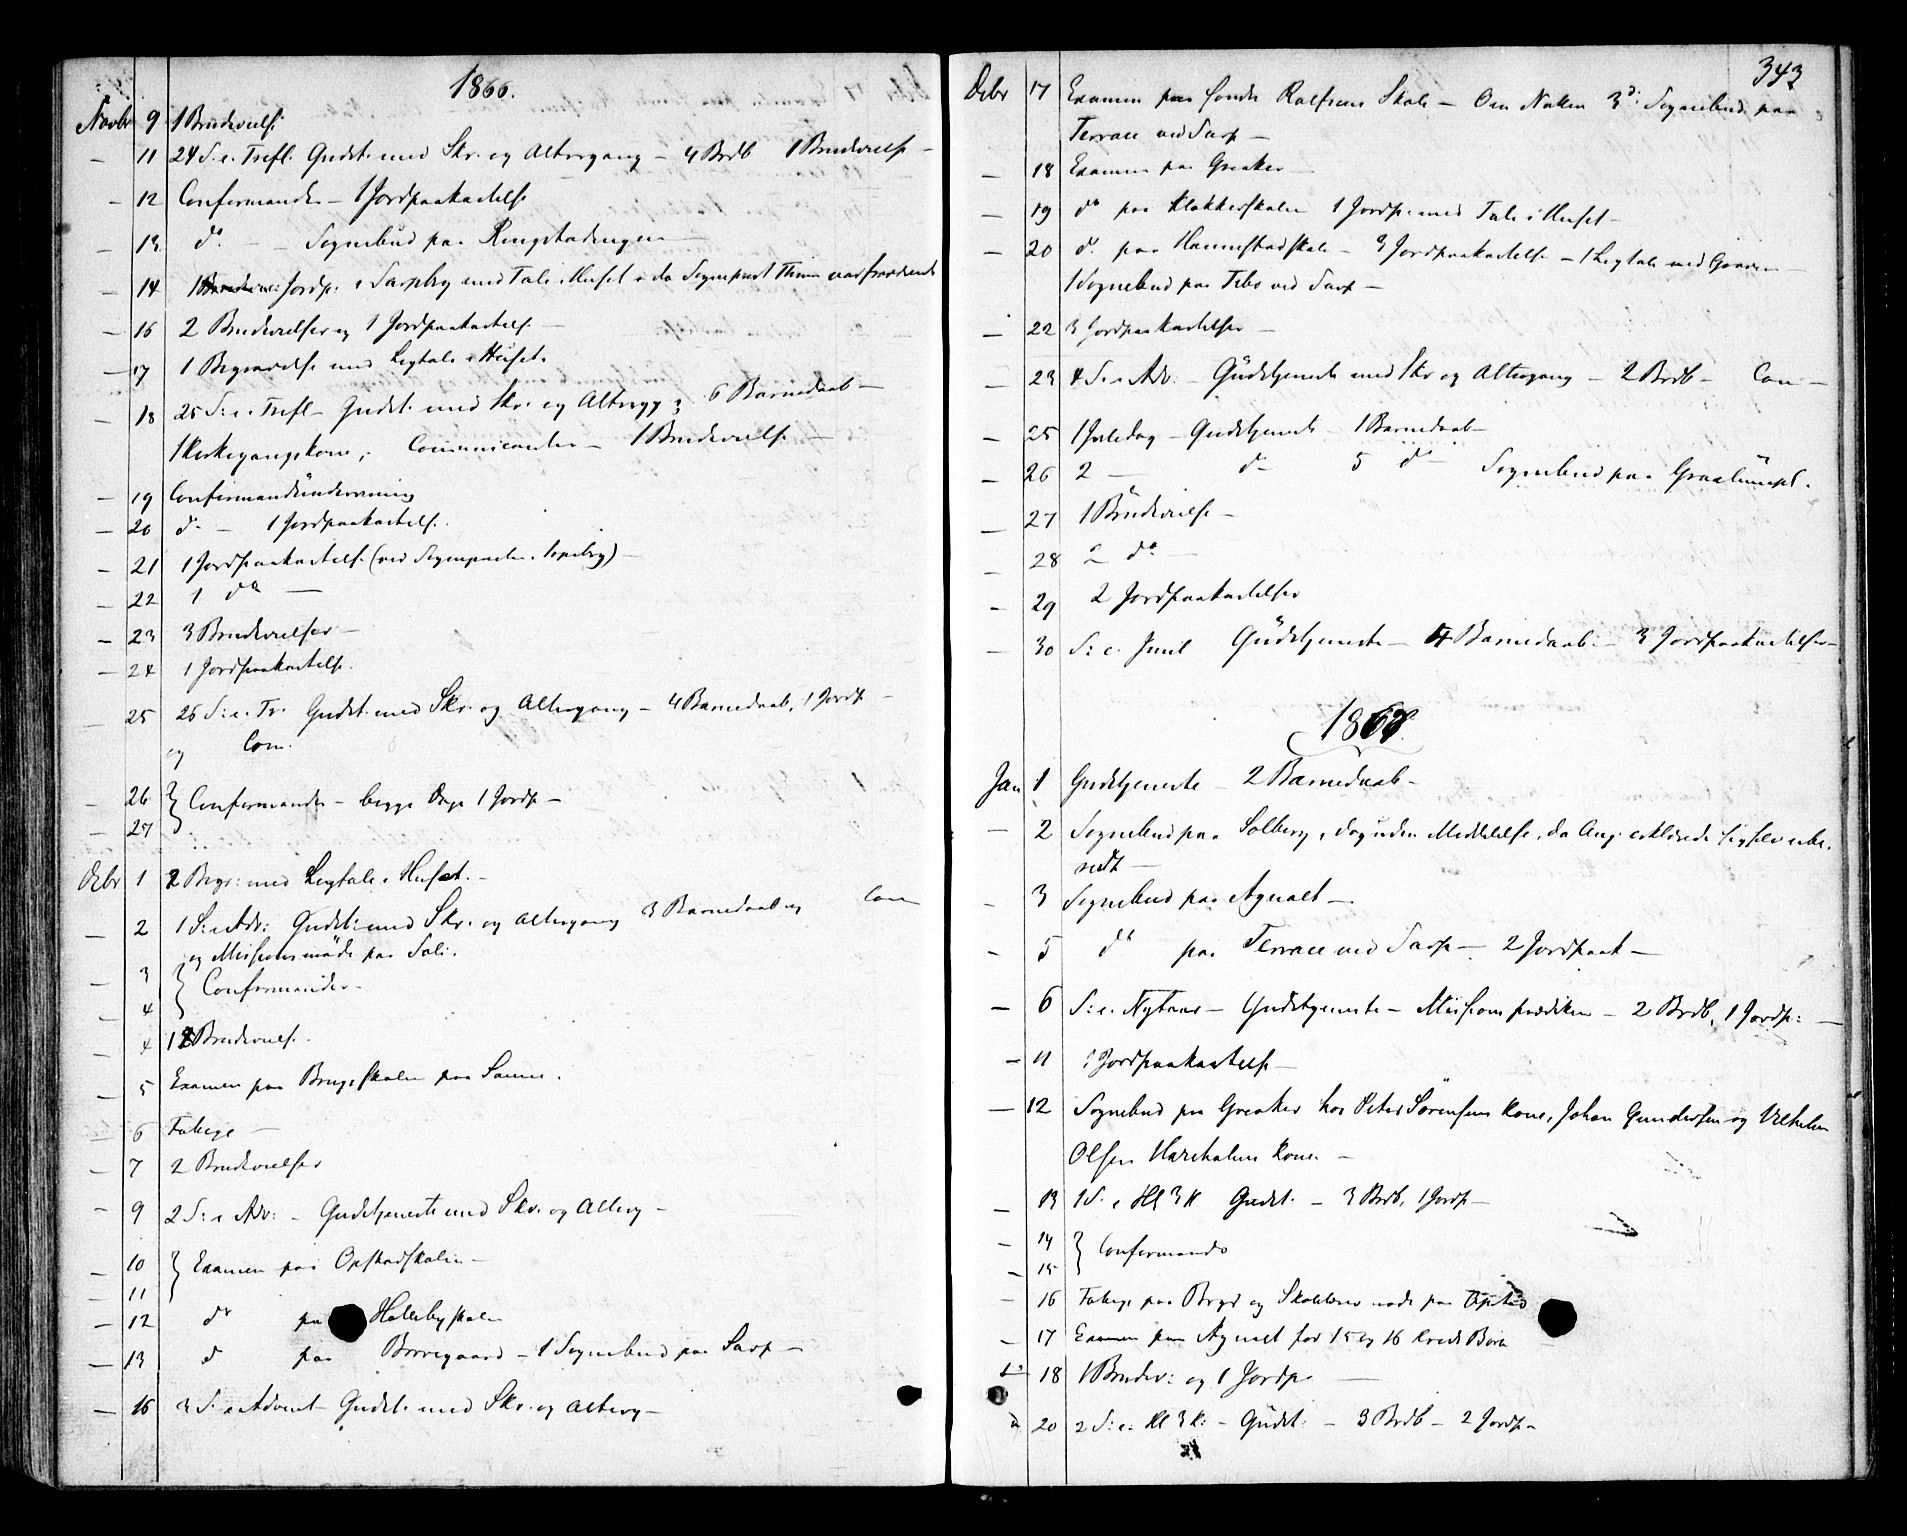 1866.
Novbr 9 1 Brudevielse
— 11 24 S. e. Trefl. Gudst. med Skr. og Altergang — 4 Brdb 1 Brudevielse —
— 12 Confirmander — 1 Jordpaakastelse
— 13 do — Sognebud paa Ringstadengen
— 14 Jordp. i Sarpbrg med Tale i Huset da Sognepræst Thinn var fraværende
— 16 2 Brudevielser og 1 Jordpaakastelse —
— 17 1 Begravelse med Ligtale i Huset.
— 18 25 S. e. Trefl — Gudst. med Skr. og Alterg 6 Barnedaab —
1 Kirkegangskone, Communicanter — 1 Brudevielse —
— 19 Confirmandundervisning
— 20 do — 1 Jordpaakastelse.
— 21 1 Jordpaakastelse (ved Sognepræsten i Sarpsbrg) —
— 22 1 do —
— 23 3 Brudevielser —
— 24 1 Jordpaakastelse.
25 26 S. e. Tr. Gudst. med Skr. og Altergang — 4 Barnedaab, 1 Jordp —
og Com.
— 26 } Confirmander — begge Dage 1 Jordp —
— 27
Dcbr 1 2 Begr: med Ligtale i Huset. —
— 2 1 S. i Adv: Gudst: med Skr. og Altergang 3 Barnedaab og Com
og Missionsmøde paa Soli.
— 3 } Confirmander —
— 4
— 4 1 Brudevielse.
— 5 Examen paa Brugsskolen paa Sanne.
— 6 Tabege —
— 7 2 Brudevielser
— 9 2 S: i Adv: — Gudstjeneste med Skr. og Alterg —
— 10 } Examen paa Opstadskolen —
— 11
— 12 do paa Hallebyskolen
— 13 d paa Borregaard — 1 Sognebud paa Sarp —
— 16 3 S. i Advent — Gudst. med Skr. og Alterg —
343
Dcbr 17 Examen paa Rolfsens Skole — Om Natten 3d: Sognebud paa
Terrace ved Sarp —
— 18 Examen paa Greaker —
— 19 do paa Klokkerskolen 1 Jordp: med Tale i Huset —
— 20 do paa Hannestadskole — 3 Jordpaakastelse — 1 Ligtale ved Graven —
1 Sognebud paa Tebo ved Sarp —
— 22 3 Jordpaakastelser —
— 23 4 S. i Adv: — Gudstjeneste med Skr og Altergang — 2 Brdb — Com —
— 25 1 Juledag — Gudstjeneste — 1 Barnedaab —
— 26 2 — do 5 do — Sognebud paa
— 27 1 Brudevielse —
— 28 2 do —
— 29 2 Jordpaakastelser
— 30 S: e. Juul Gudstjeneste — 4 Barnedaab. — 3 Jordpaakastelser —
1867.
Jan 1 Gudstjeneste — 2 Barnedaab —
— 2 Sognebud paa Solberg, dog uden Meddelelse, da Ang. erklærede sig selv ube-
redt —
— 3 Sognebud paa Agnalt —
— 5 do paa Terrace ved Sarp — 2 Jordpaak —
— 6 S: e. Nytaar — Gudstjeneste — Missionsprædiken — 2 Brdb, 1 Jordp: —
— 11 1 Jordpaakastelse —
— 12 Sognebud paa Greaker hos Peter Sørensens Kone, Johan Gundersen og Vilhelm
Olsen Hareholens Kone —
— 13 1 S. e Hl 3 K Gudst. — 3 Brdb, 1 Jordp —
— 14 } Confirmander
— 15
— 16 paa og paa Opstad
— 17 Examen paa Agnalt for 15 og 16 Kreds Børn
18 1 Brudev: og 1 Jordp. —
20 2 S: e. Hl 3 K: — Gudst: — 3 Brdb — 2 Jordp —